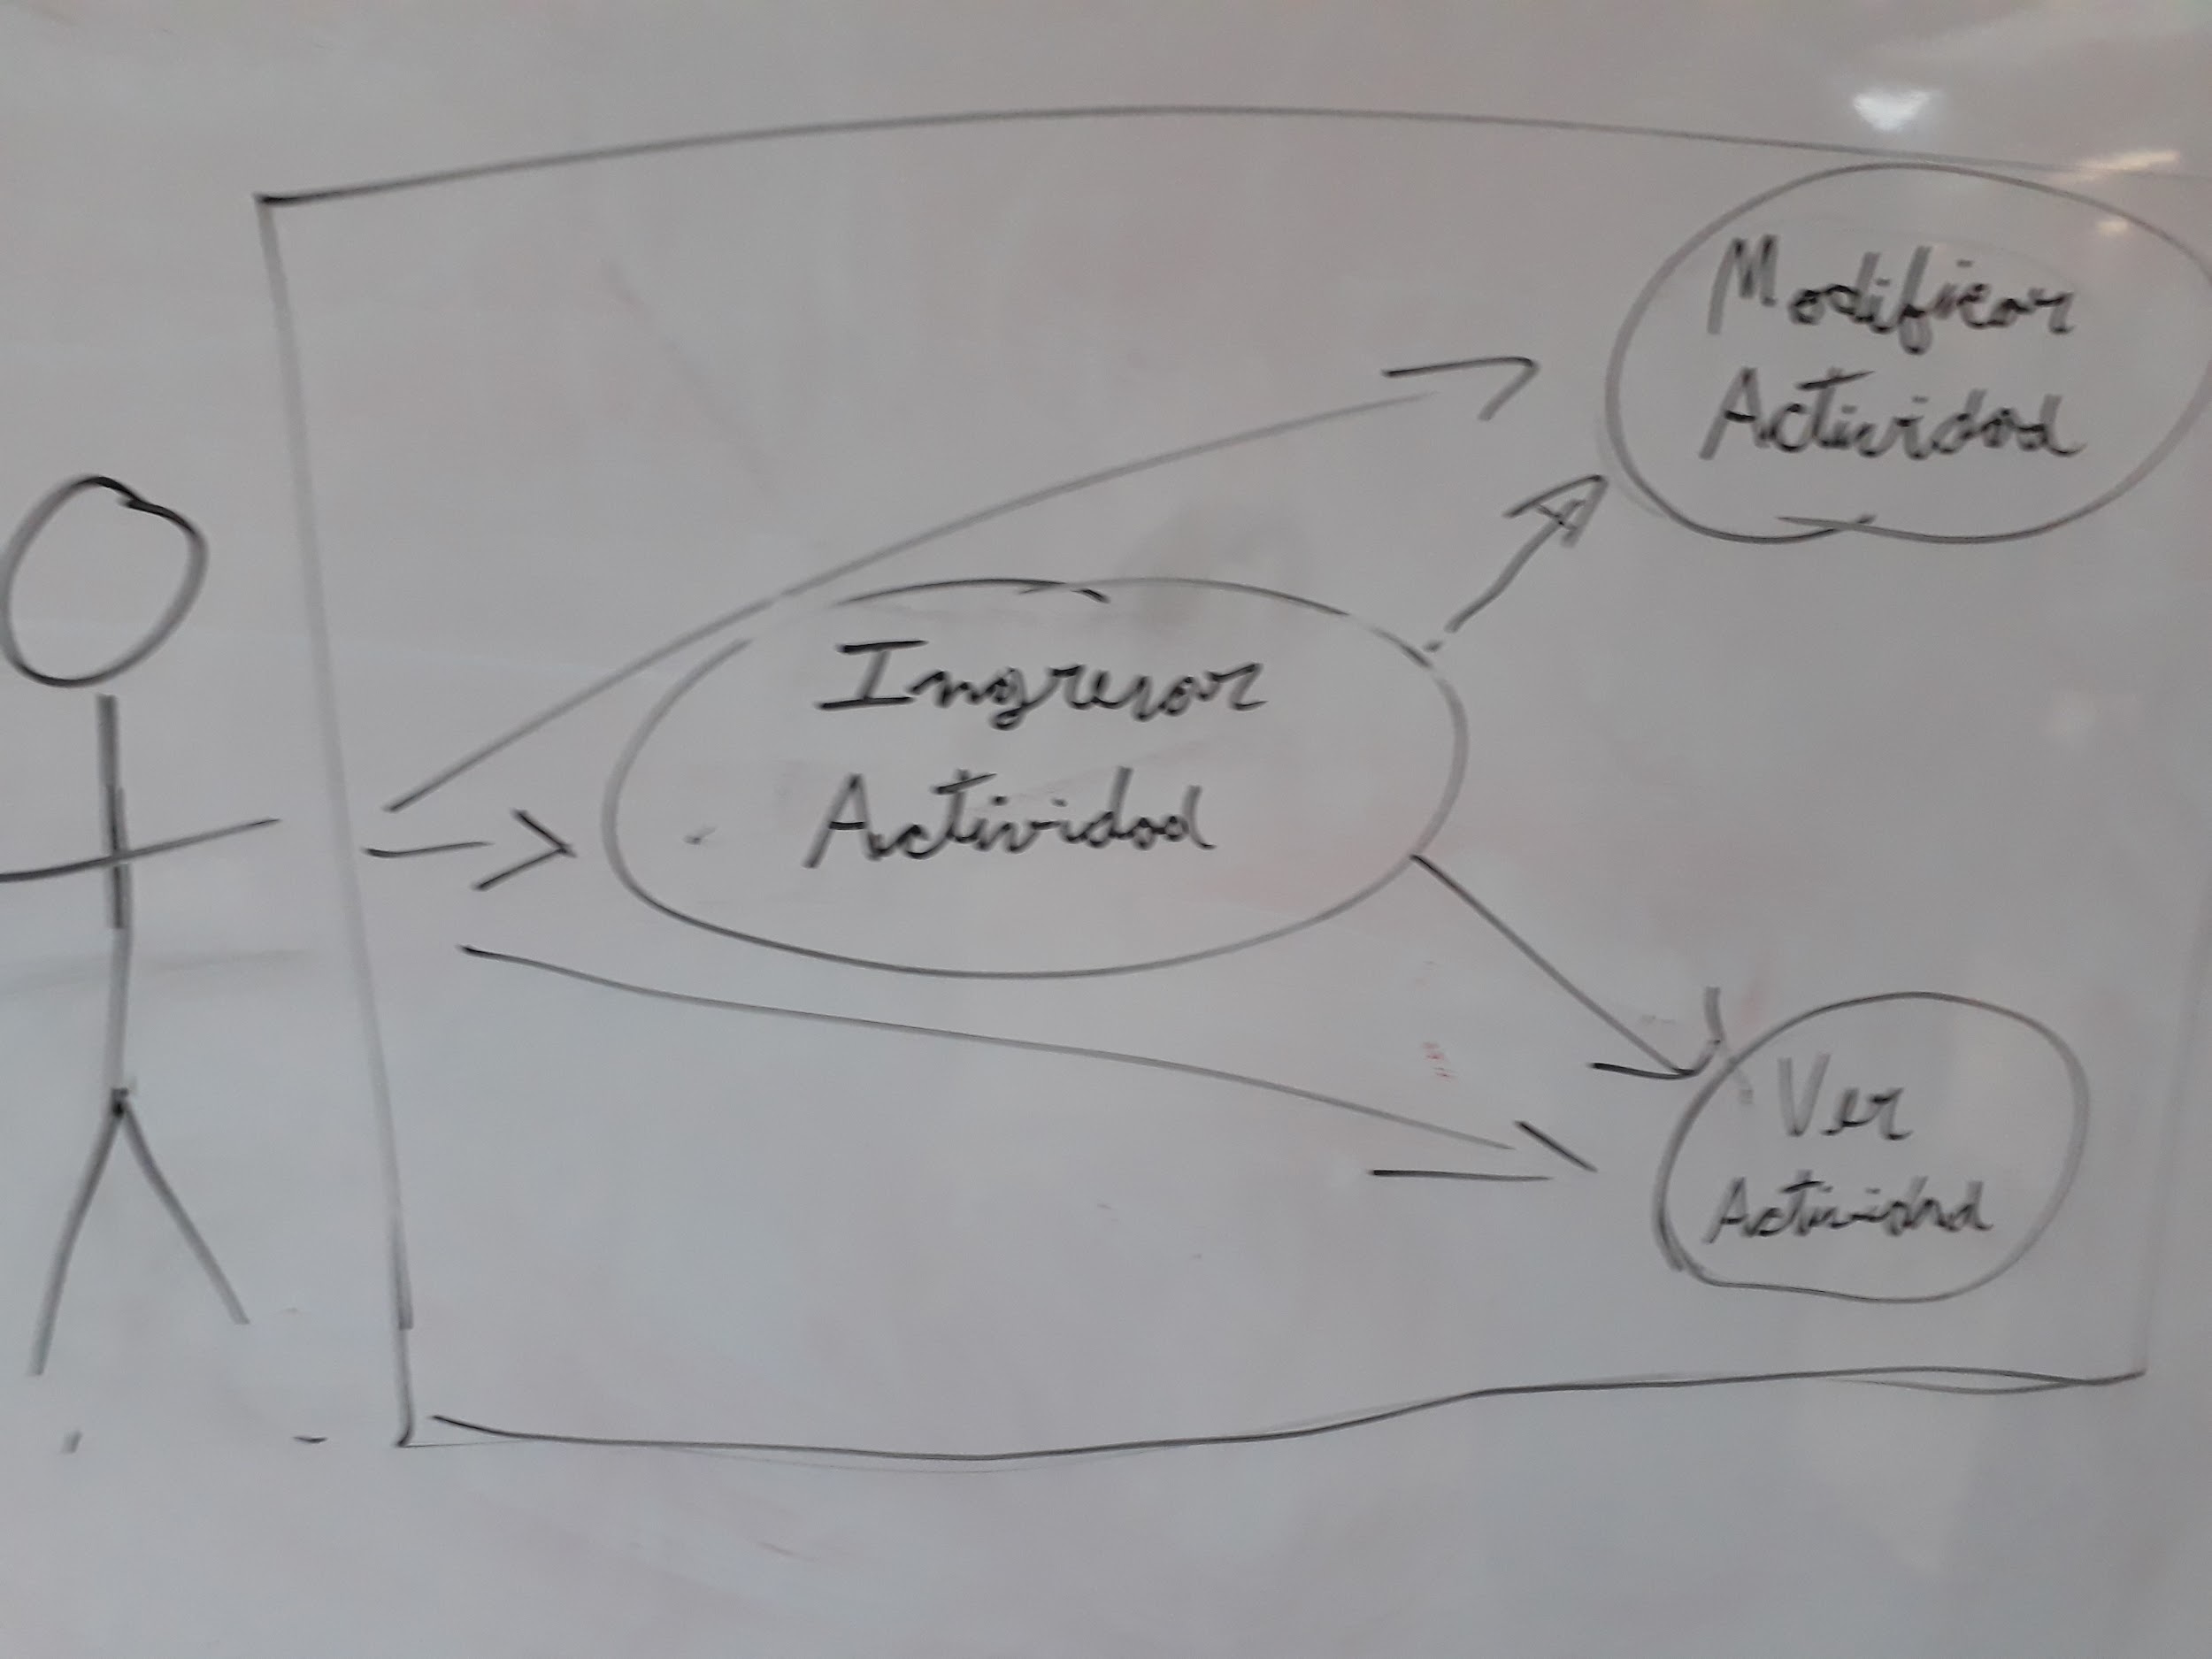 Modificar
Actividad
Ingresar
Actividad
Ver
Actividad